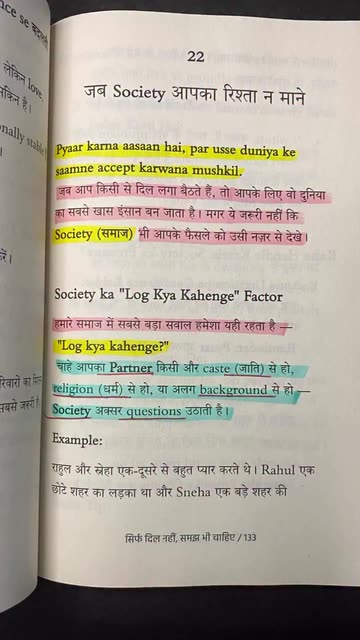 22
जब Society आपका रिश्ता न माने
Pyaar karna aasaan hai, par usse duniya ke
saamne accept karwana mushkil.
जब आप किसी से दिल लगा बैठते हैं, तो आपके लिए वो दुनिया
का सबसे खास इंसान बन जाता है। मगर ये जरूरी नहीं कि
Society (समाज) भी आपके फैसले को उसी नज़र से देखे।
Society ka "Log Kya Kahenge" Factor
हमारे समाज में सबसे बड़ा सवाल हमेशा यही रहता है —
"Log kya kahenge?"
चाहे आपका Partner किसी और caste (जाति) से हो,
religion (धर्म) से हो, या अलग background से हो —
Society अक्सर questions उठाती है।
Example:
राहुल और स्नेहा एक-दूसरे से बहुत प्यार करते थे। Rahul एक
छोटे शहर का लड़का था और Sneha एक बड़े शहर की
सिर्फ दिल नहीं, समझ भी चाहिए / 133